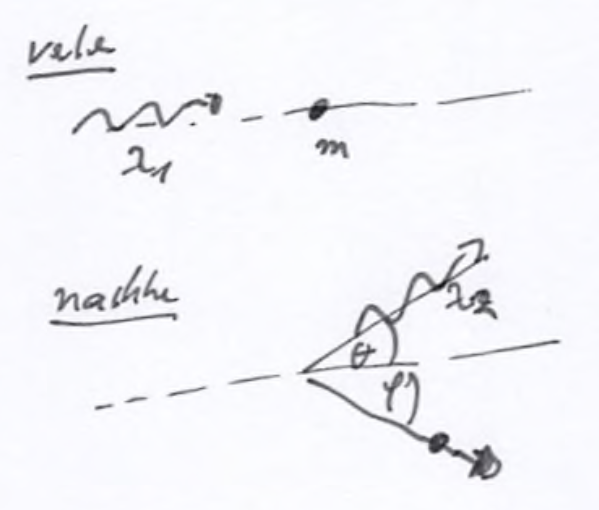 vorher
λ₁ m
nachher
λ₂
θ
φ